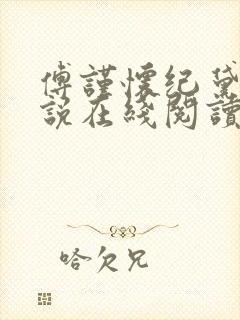 傅謹懷紀黛
說在綫閱讀
哈欠兄